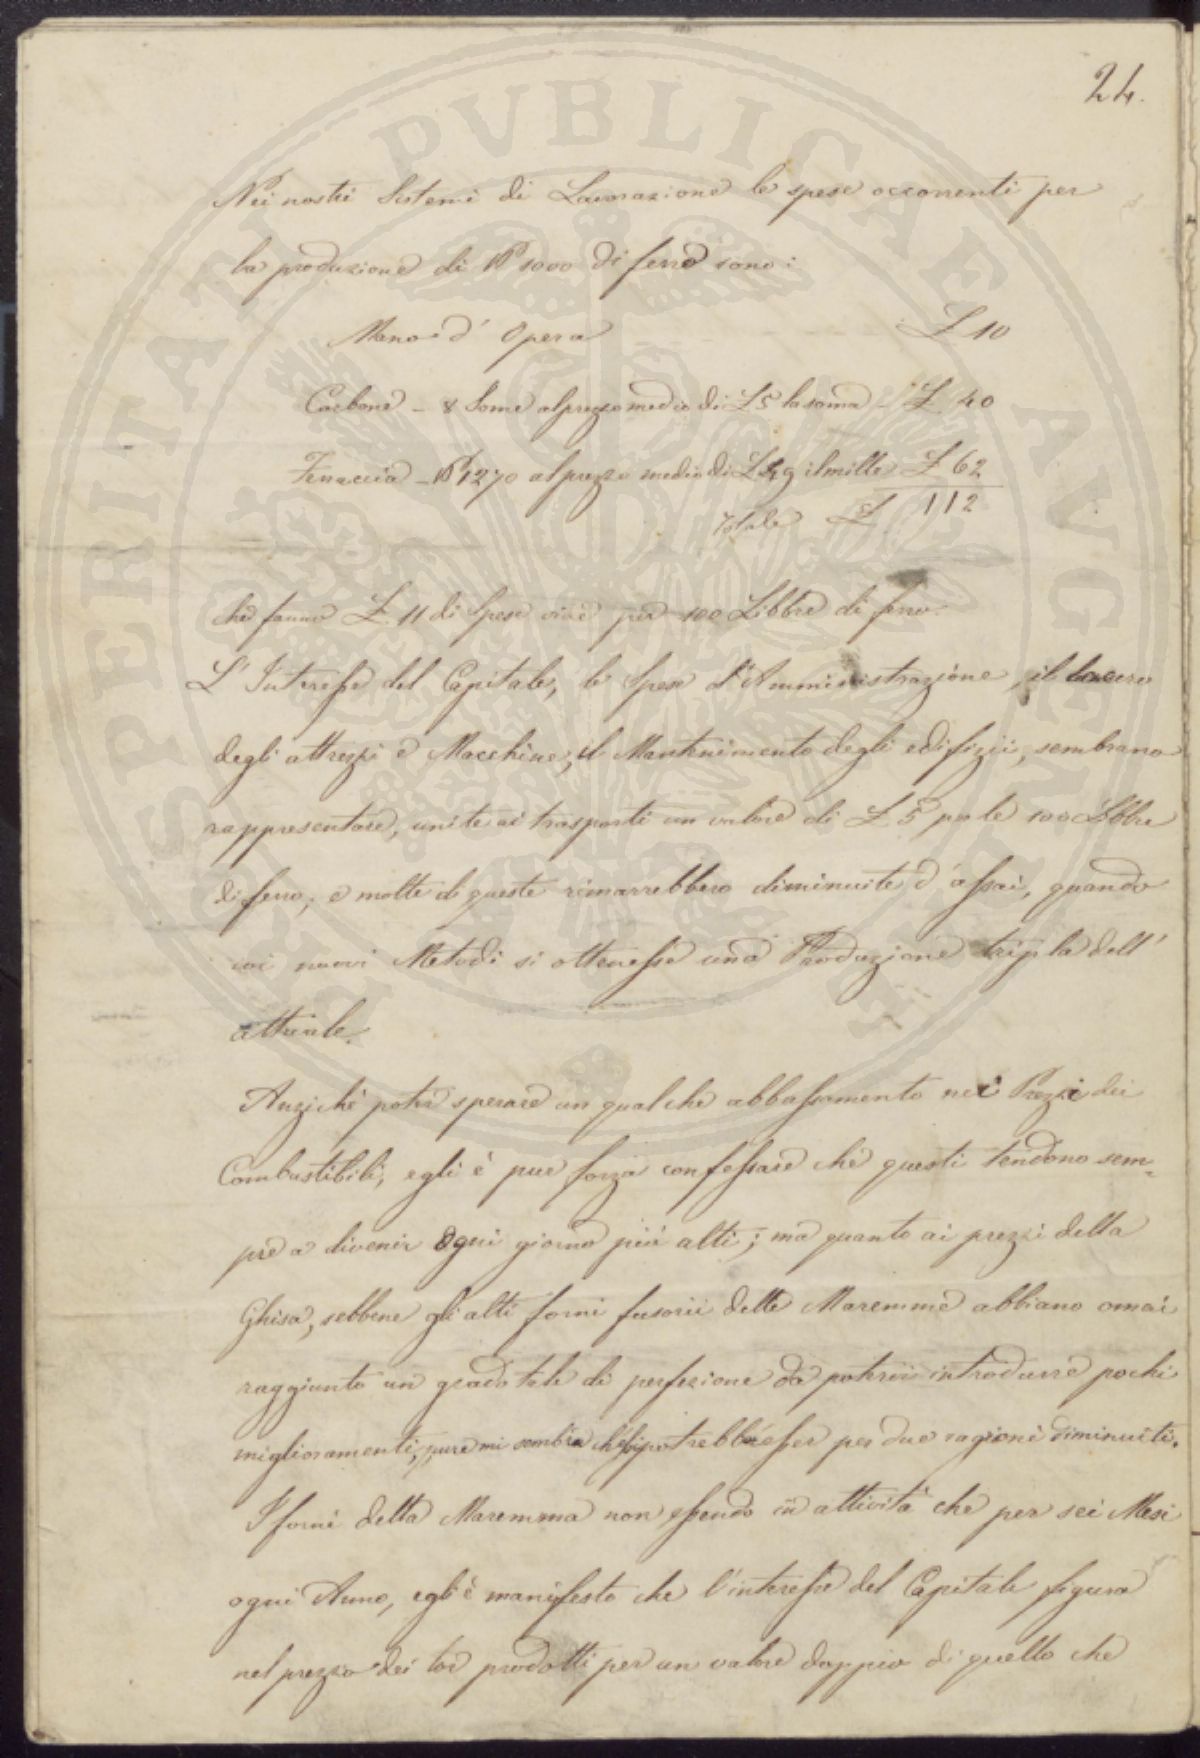 24.
Nei nostri Sistemi di Lavorazione le spese occorrenti per
la produzione di ℔ 1000 di ferro sono:
Mano d'Opera £ 10
Carbone - 8 Some al prezzo medio di £ 5 la soma - £ 40
Ferraccio - ℔ 1270 al prezzo medio di £ 49 il mille £ 62
Totale £ 112
che fanno £ 11 di Spese vive per 100 Libbre di ferro.
L'Interesse del Capitale, le Spese d'Amministrazione, il lacero
degli attrezzi e Macchine, il Mantenimento degli edifizii, sembrano
rappresentare, unite ai trasporti un valore di £ 5 per le 100 Libbre
di ferro; e molte di queste rimarrebbero diminuite d'assai, quando
coi nuovi Metodi si ottenesse una Produzione tripla dell'
attuale.
Anzichè poter sperare un qualche abbassamento nei Prezzi dei
Combustibili, egli è pur forza confessare che questi tendono sem-
pre a divenir ogni giorno più alti; ma quanto ai prezzi della
Ghisa, sebbene gli alti forni fusorii delle Maremme abbiano omai
raggiunto un grado tale di perfezione da potervi introdurre pochi
miglioramenti, pure mi sembra ch'essi potrebber esser per due ragioni diminuiti.
I forni della Maremma non essendo in attività che per sei Mesi
ogni Anno, egli è manifesto che l'interesse del Capitale figura
nel prezzo dei lor prodotti per un valore doppio di quello che
PROSPERITATI PVBLICAE AVGENDAE